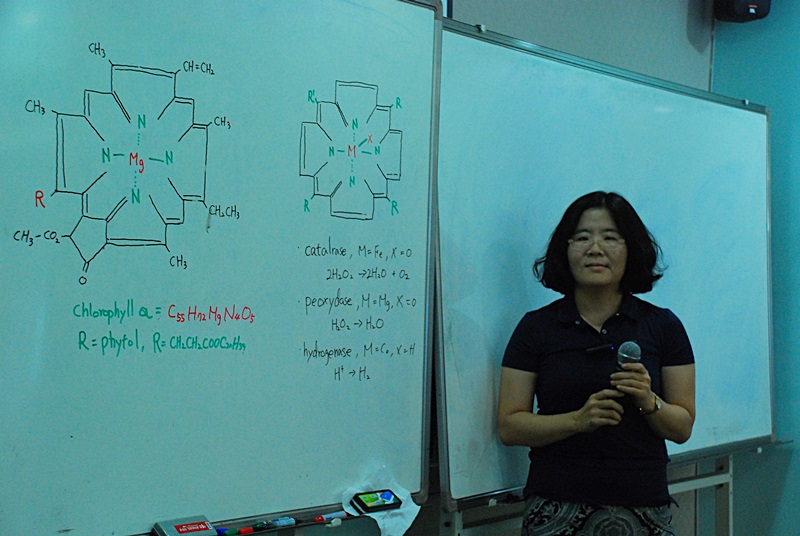 CH₃
CH=CH₂
CH₃
CH₃
N
N
Mg
N
N
R
CH₂CH₃
CH₃-CO₂
CH₃
O
Chlorophyll a = C₅₅H₇₂MgN₄O₅
R = phytol, R = CH₂CH₂COOC₂₀H₃₉
R'
R
N
X
N
M
N
N
R
R
· catalrase, M=Fe, X=O
2H₂O₂ → 2H₂O + O₂
· peoxydase, M=Mg, X=O
H₂O₂ → H₂O
· hydrogenase, M=Co, X=H
H⁺ → H₂